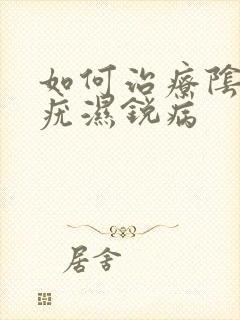 如何治療陰
疣濕銳病
居舍